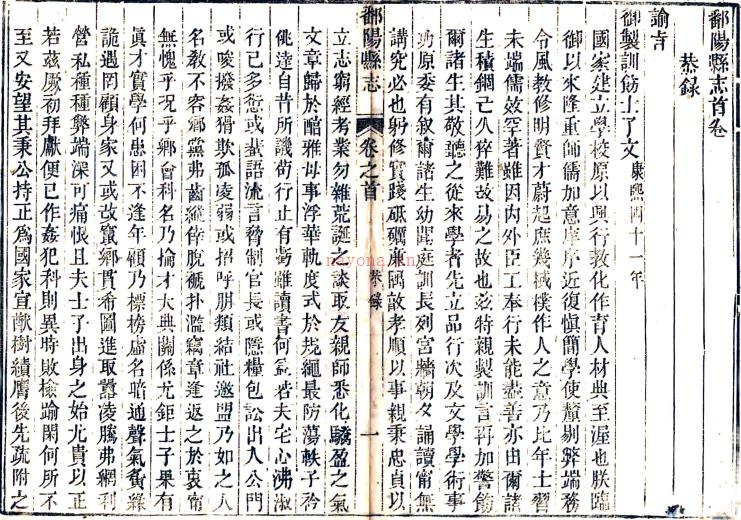 鄱陽縣志首卷
恭錄
諭旨
御製訓飭士子文 康熙四十一年
國家建立學校原以興行教化作育人材典至渥也朕臨
御以來隆重師儒加意庠序近復慎簡學使釐剔弊端務
令風教修明賢才蔚起庶幾棫樸作人之意乃比年士習
未端儒效罕著雖因內外臣工奉行未能盡善亦由爾諸
生積錮已久猝難改易之故也茲特親製訓言再加警飭
爾諸生其敬聽之從來學者先立品行次及文學學術事
功原委有敘爾諸生幼聞庭訓長列宮牆朝夕誦讀寧無
講究必也躬修實踐砥礪廉隅敦孝順以事親秉忠貞以
鄱陽縣志
卷之首
恭錄
一
立志窮經考業勿雜荒誕之談取友親師悉化驕盈之氣
文章歸於醇雅毋事浮華軌度式於規繩最防蕩軼子衿
佻達自昔所譏苟行止有虧雖讀書何益若夫宅心沸淑
行己多愆或蜚語流言脅制官長或隱糧包訟出入公門
或唆撥姦猾欺孤凌弱或招呼朋類結社邀盟乃如之人
名教不容鄉黨弗齒縱倖脫褫扑濫竊章逢返之於衷寧
無愧乎況乎鄉會科名乃掄才大典關係尤鉅士子果有
真才實學何患困不逢年顧乃標榜虛名暗通聲氣夤緣
詭遇罔顧身家又或改竄鄉貫希圖進取囂凌騰弗網利
營私種種弊端深可痛恨且夫士子出身之始尤貴以正
若茲厥初拜獻便已作姦犯科則異時敗檢踰閑何所不
至又安望其秉公持正為國家宣猷樹績膺後先疏附之
nayona.cn